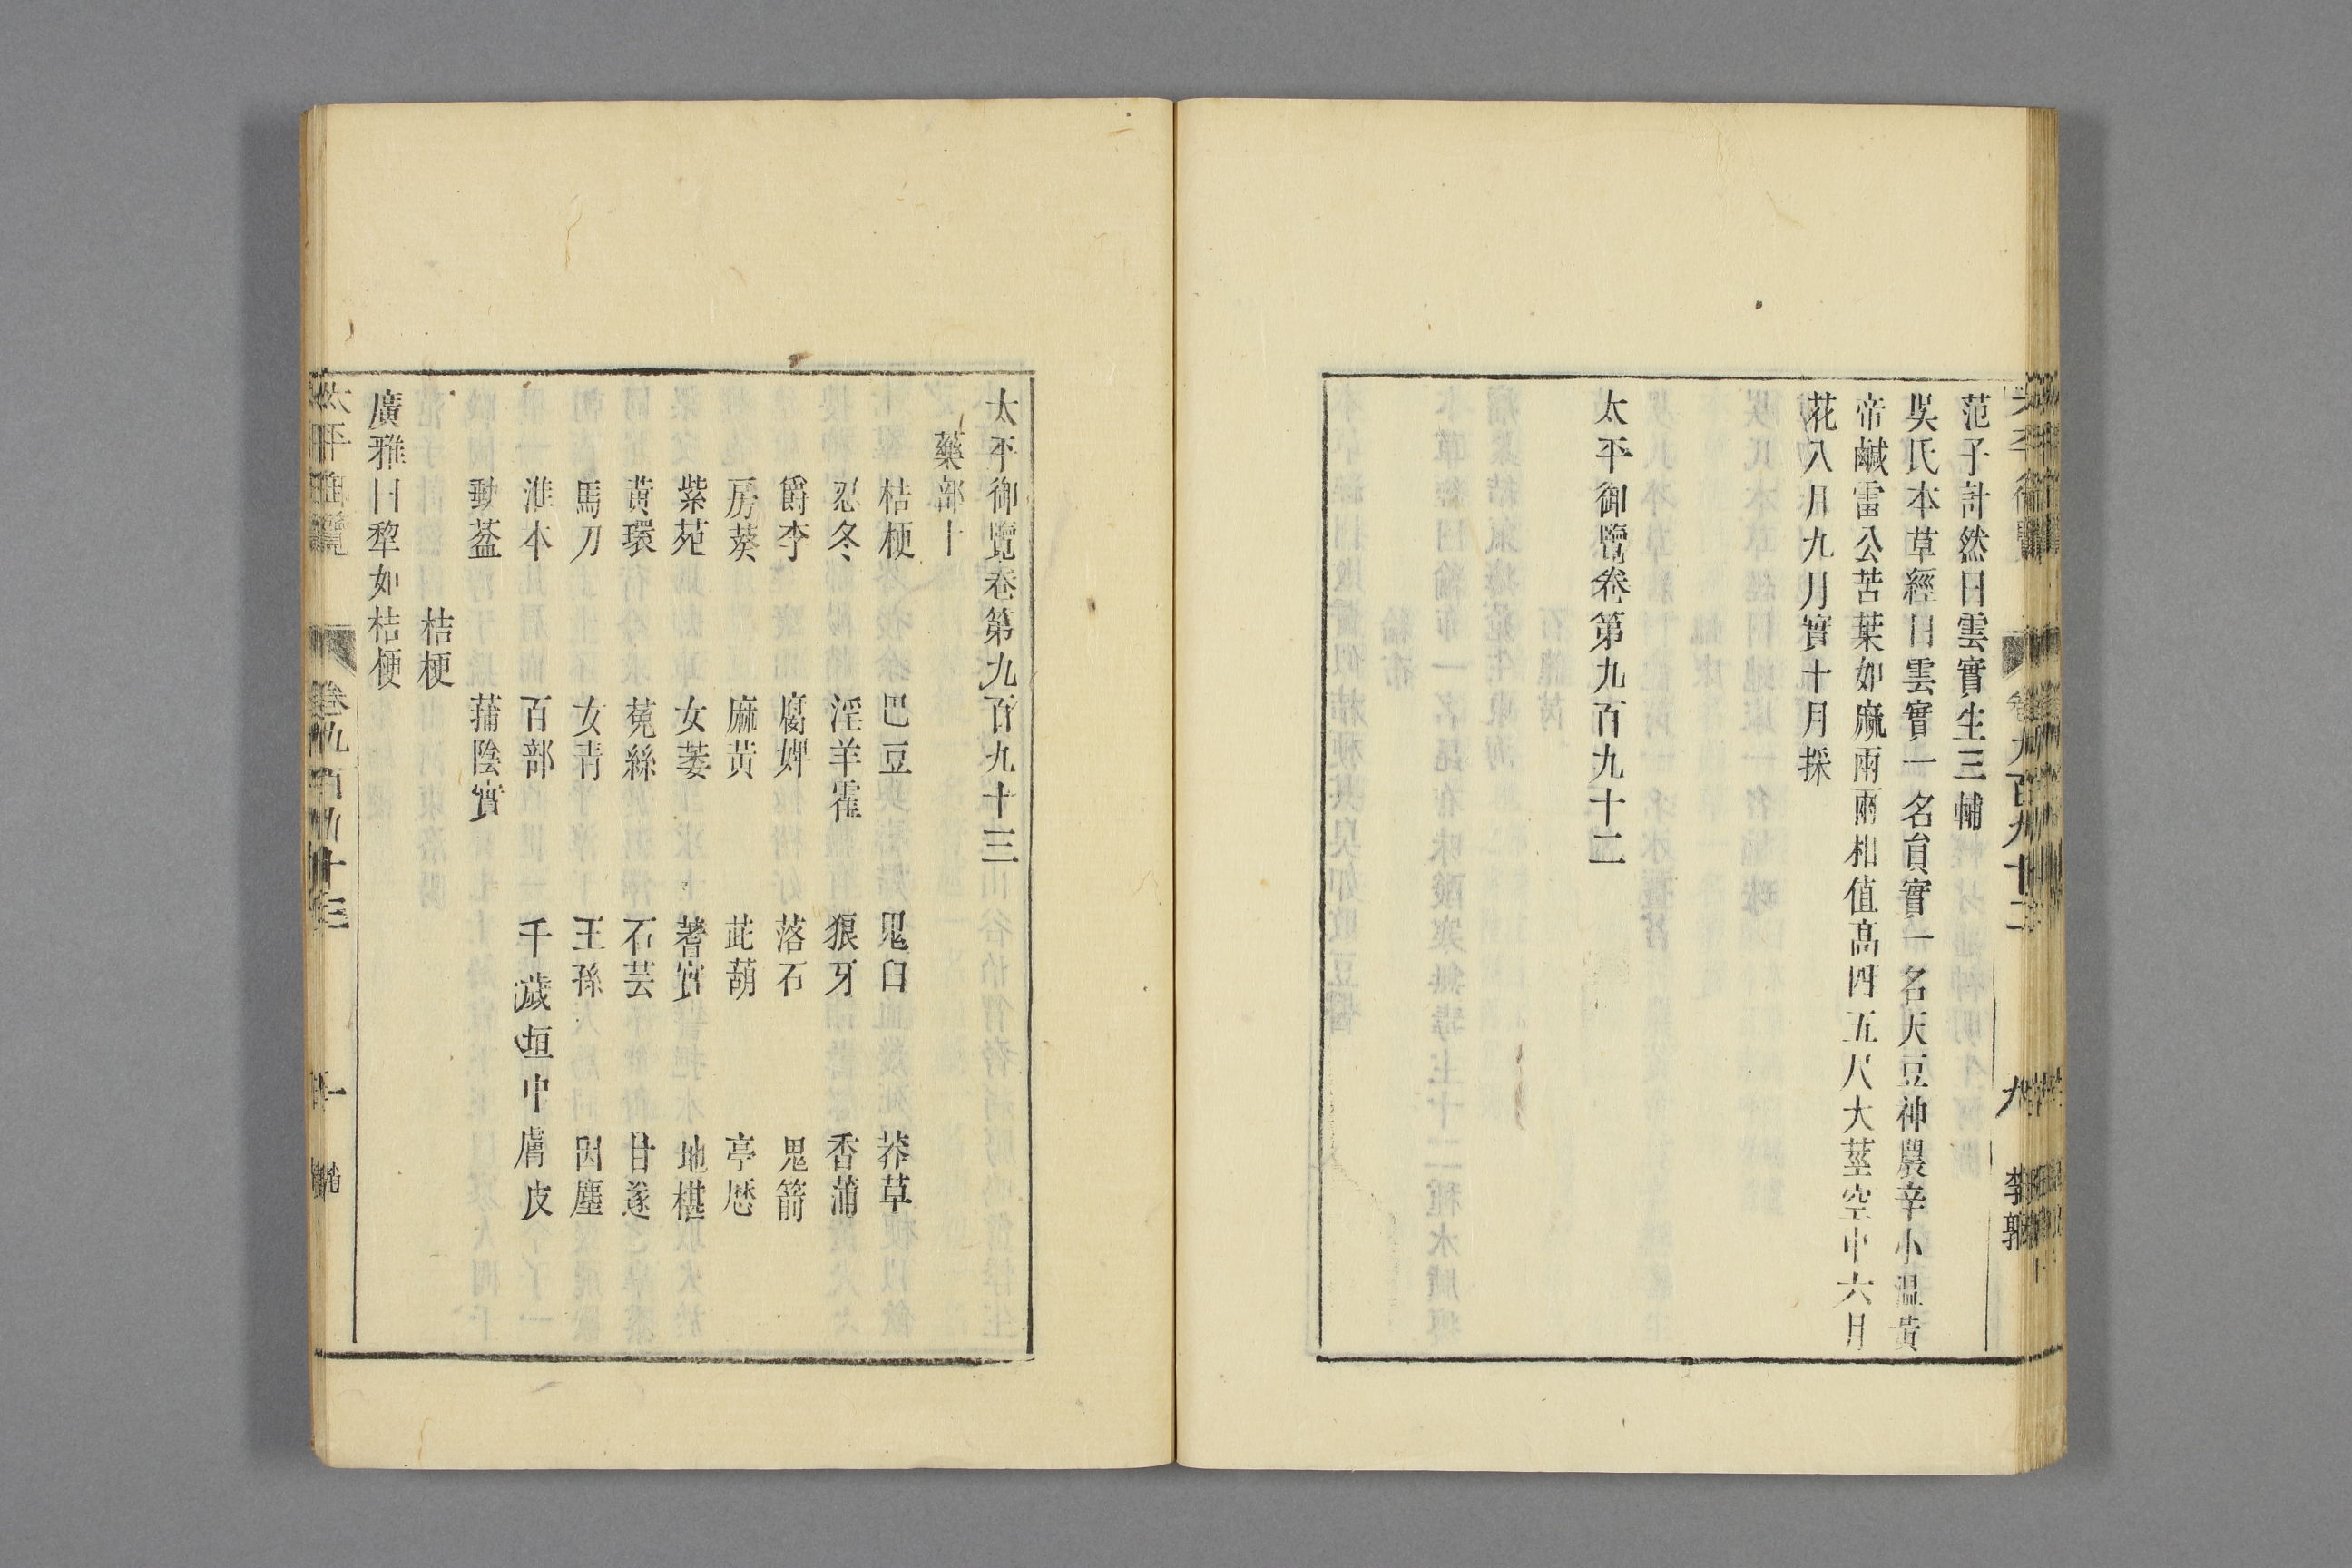 范子計然曰雲實生三輔
吳氏本草經曰雲實一名員實一名天豆神農辛小温黄
帝鹹雷公苦葉如麻兩兩相值高四五尺大莖空中六月
花八月九月實十月採
太平御覽卷第九百九十二
太平御覽卷第九百九十三
藥部十
桔梗 巴豆 鬼臼 莽草
忍冬 淫羊藿 狼牙 香蒲
爵李 腐婢 落石 鬼箭
房葵 麻黃 茈葫 亭歷
紫苑 女萎 蓍實 地椹
黃環 菟絲 石芸 甘遂
馬刀 女青 王孫 因塵
淮木 百部 千歲垣中膚皮
蒲陰實
桔梗
廣雅曰犂如桔梗
太平御覽 卷九百九十三 一